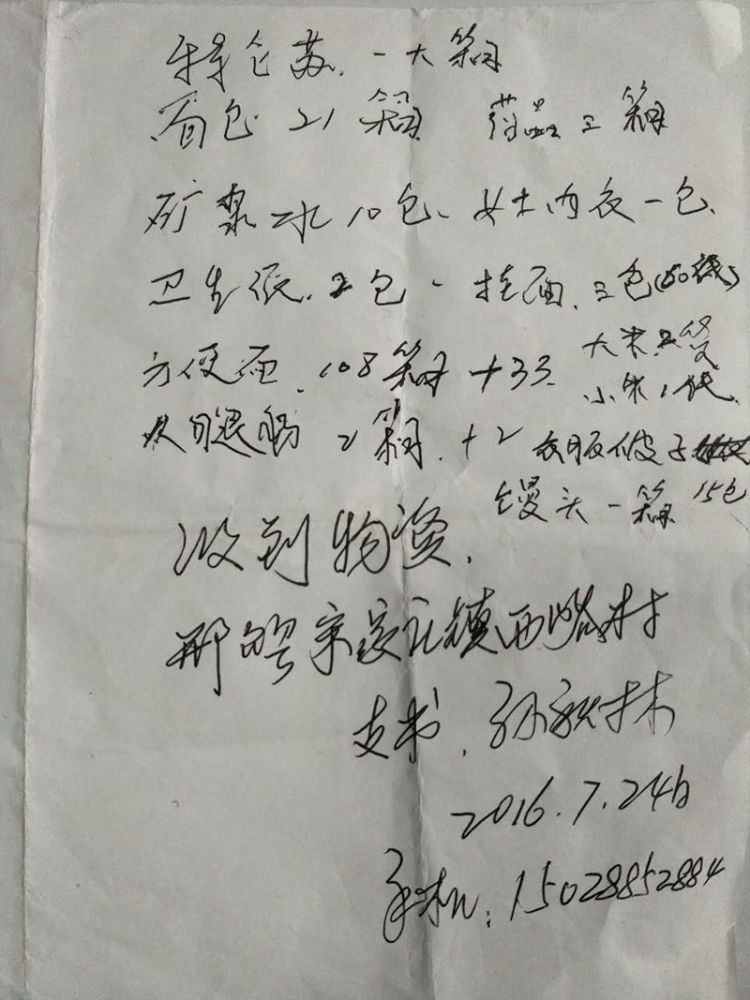 特仑苏.一大箱
面包21箱 药品三箱
矿泉水10包、女士内衣一包、
卫生纸.2包、挂面.三包(60袋)
方便面.108箱+33. 大米三袋
小米1袋.
火腿肠2箱.+2 衣服被子 15包
馒头一箱
收到物资.
邢 宋家庄镇西 村
支书.孙秋林
2016.7.24日
手机:15028852884